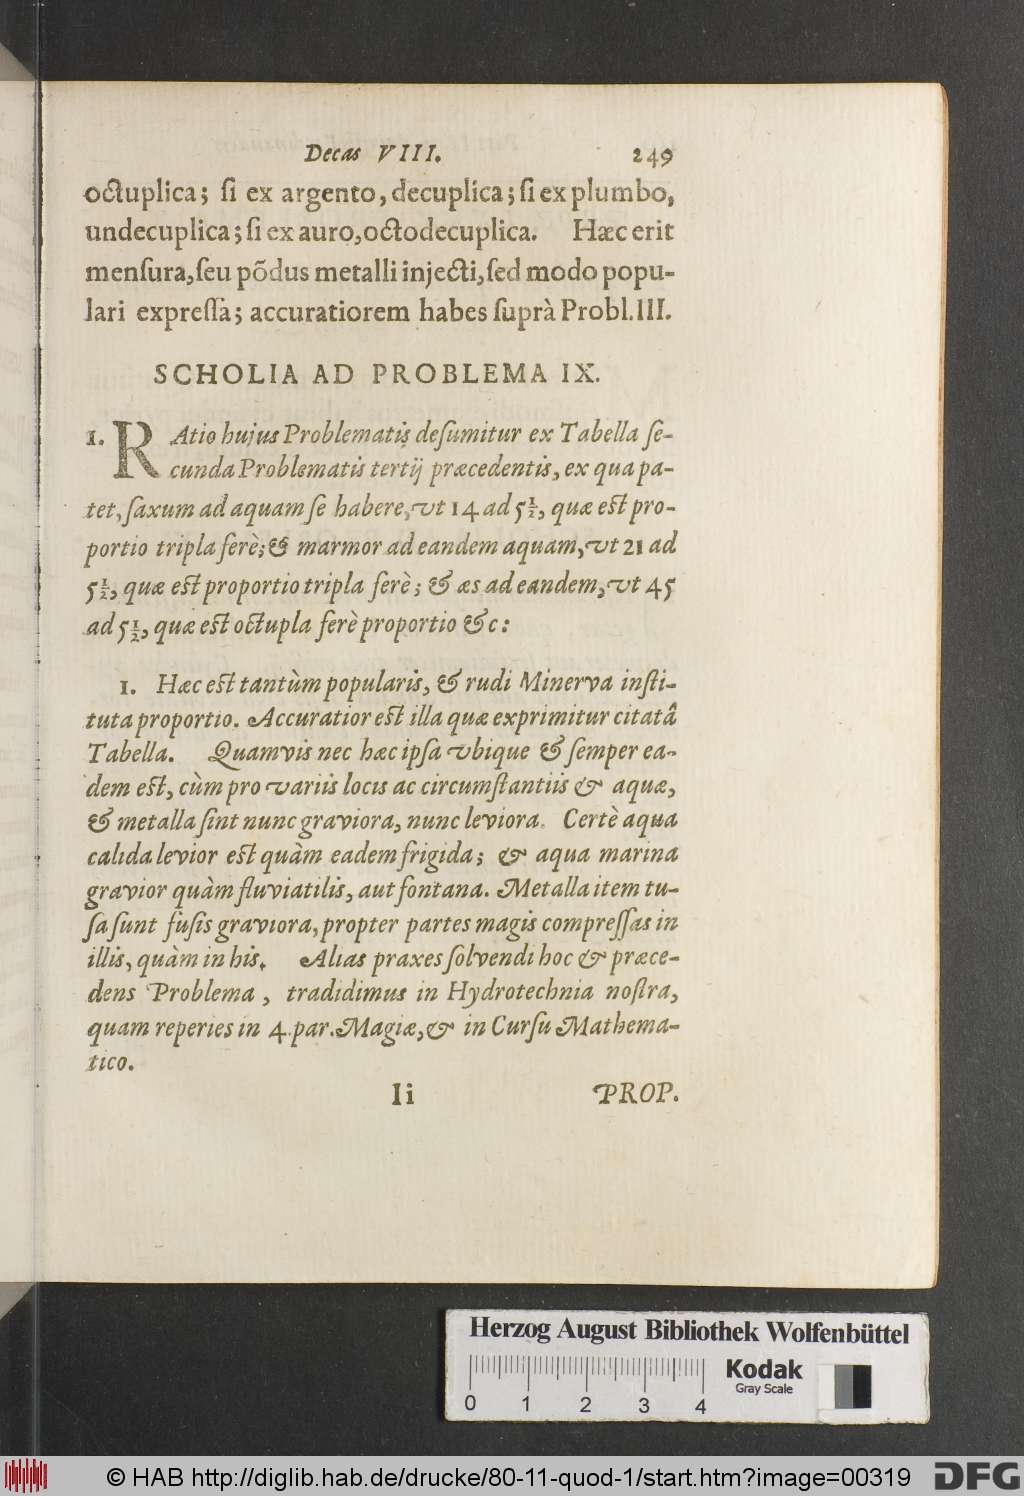 Decas VIII. 249
octuplica; ſi ex argento, decuplica; ſi ex plumbo,
undecuplica; ſi ex auro, octodecuplica. Hæc erit
menſura, ſeu põdus metalli injecti, ſed modo popu-
lari expreſſa; accuratiorem habes ſuprà Probl. III.
SCHOLIA AD PROBLEMA IX.
1. RAtio hujus Problematis deſumitur ex Tabella ſe-
cunda Problematis tertij præcedentis, ex qua pa-
tet, ſaxum ad aquam ſe habere, vt 14 ad 5½, quæ est pro-
portio tripla ferè; & marmor ad eandem aquam, vt 21 ad
5½, quæ est proportio tripla ferè; & æs ad eandem, vt 45
ad 5½, quæ est octupla ferè proportio &c:
1. Hæc est tantùm popularis, & rudi Minerva inſti-
tuta proportio. Accuratior est illa quæ exprimitur citatâ
Tabella. Quamvis nec hæc ipſa vbique & ſemper ea-
dem est, cùm pro variis locis ac circumſtantiis & aquæ,
& metalla ſint nunc graviora, nunc leviora. Certè aqua
calida levior est quàm eadem frigida; & aqua marina
gravior quàm fluviatilis, aut fontana. Metalla item tu-
ſa ſunt fuſis graviora, propter partes magis compreſſas in
illis, quàm in his. Alias praxes ſolvendi hoc & præce-
dens Problema, tradidimus in Hydrotechnia noſtra,
quam reperies in 4. par. Magiæ, & in Curſu Mathema-
tico.
Ii PROP.
Herzog August Bibliothek Wolfenbüttel
Kodak
Gray Scale
0 1 2 3 4
© HAB http://diglib.hab.de/drucke/80-11-quod-1/start.htm?image=00319
DFG